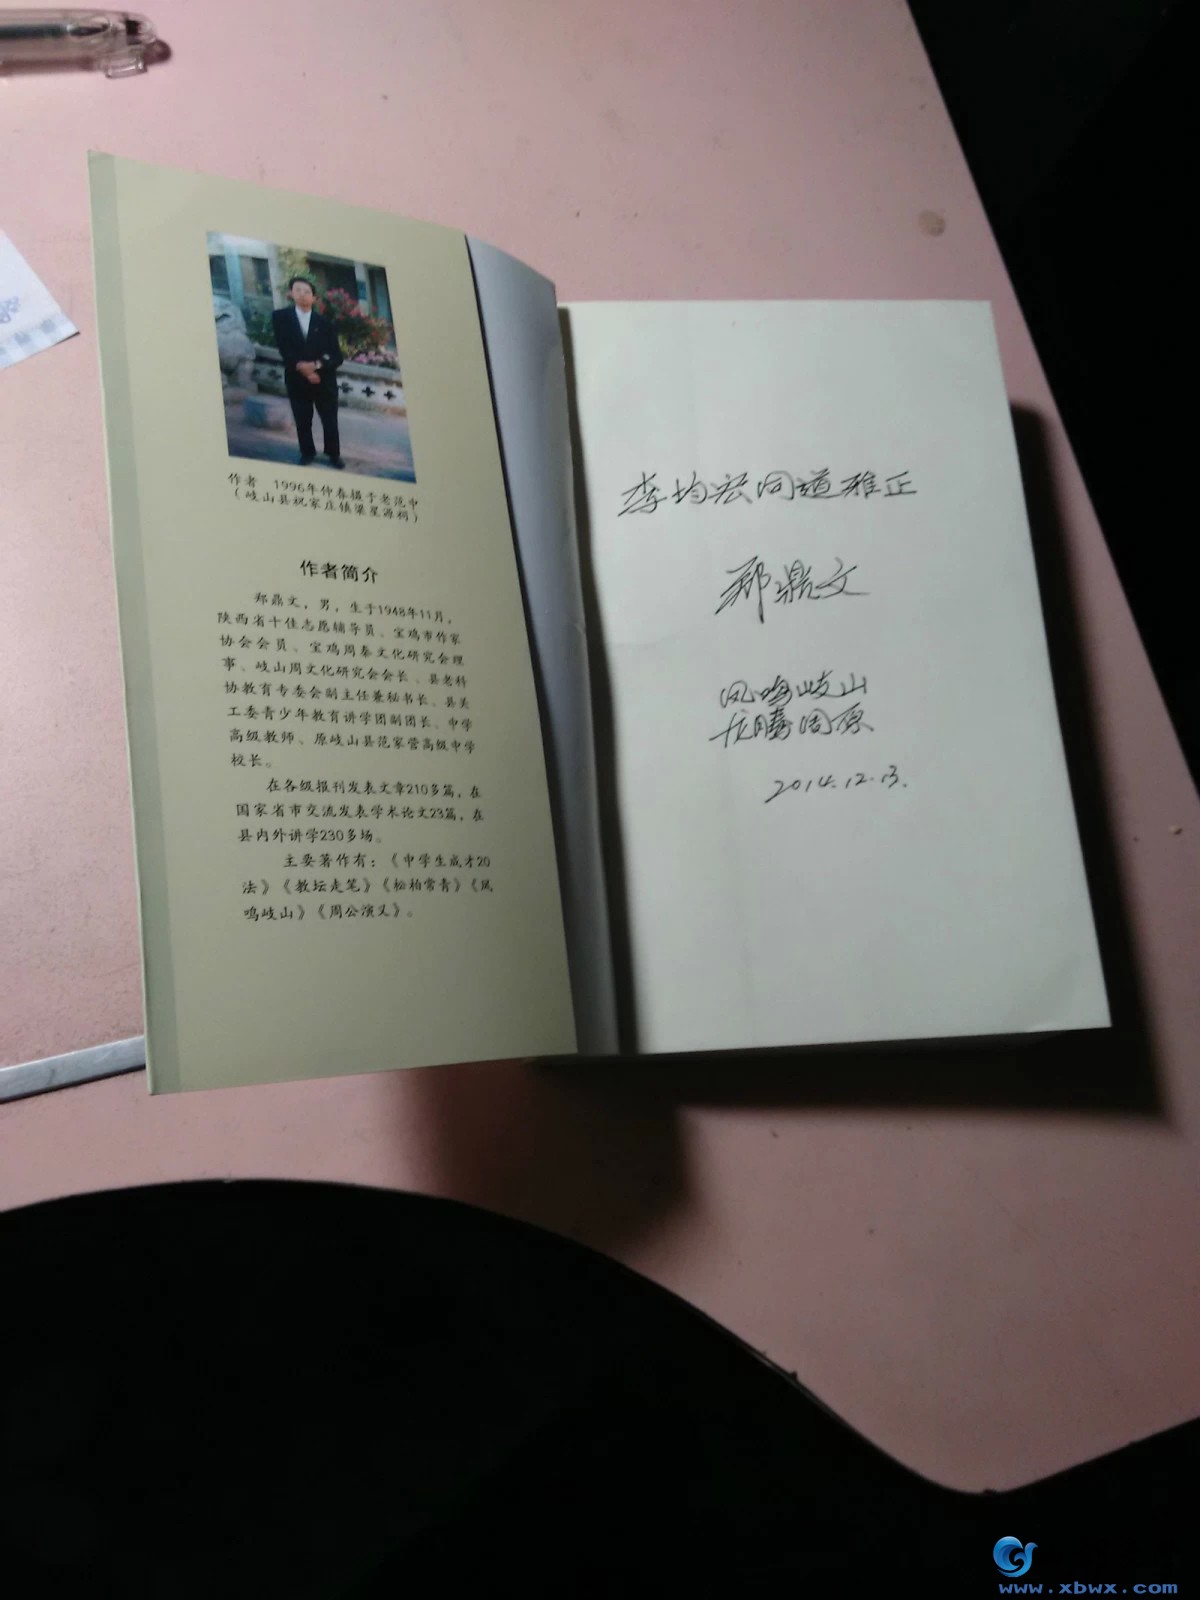 作者 1996年仲春摄于老范中
(岐山县祝家庄镇梁星源祠)
作者简介
郑鼎文，男，生于1948年11月，
陕西省十佳志愿辅导员、宝鸡市作家
协会会员、宝鸡周秦文化研究会理
事、岐山周文化研究会会长、县老科
协教育专委会副主任兼秘书长、县关
工委青少年教育讲学团副团长、中学
高级教师、原岐山县范家营高级中学
校长。
在各级报刊发表文章210多篇，在
国家省市交流发表学术论文23篇，在
县内外讲学230多场。
主要著作有：《中学生成才20
法》《教坛走笔》《松柏常青》《凤
鸣岐山》《周公演义》。
李均宏同道雅正
郑鼎文
凤鸣岐山
龙腾周原
2014.12.13.
www.xbwx.com